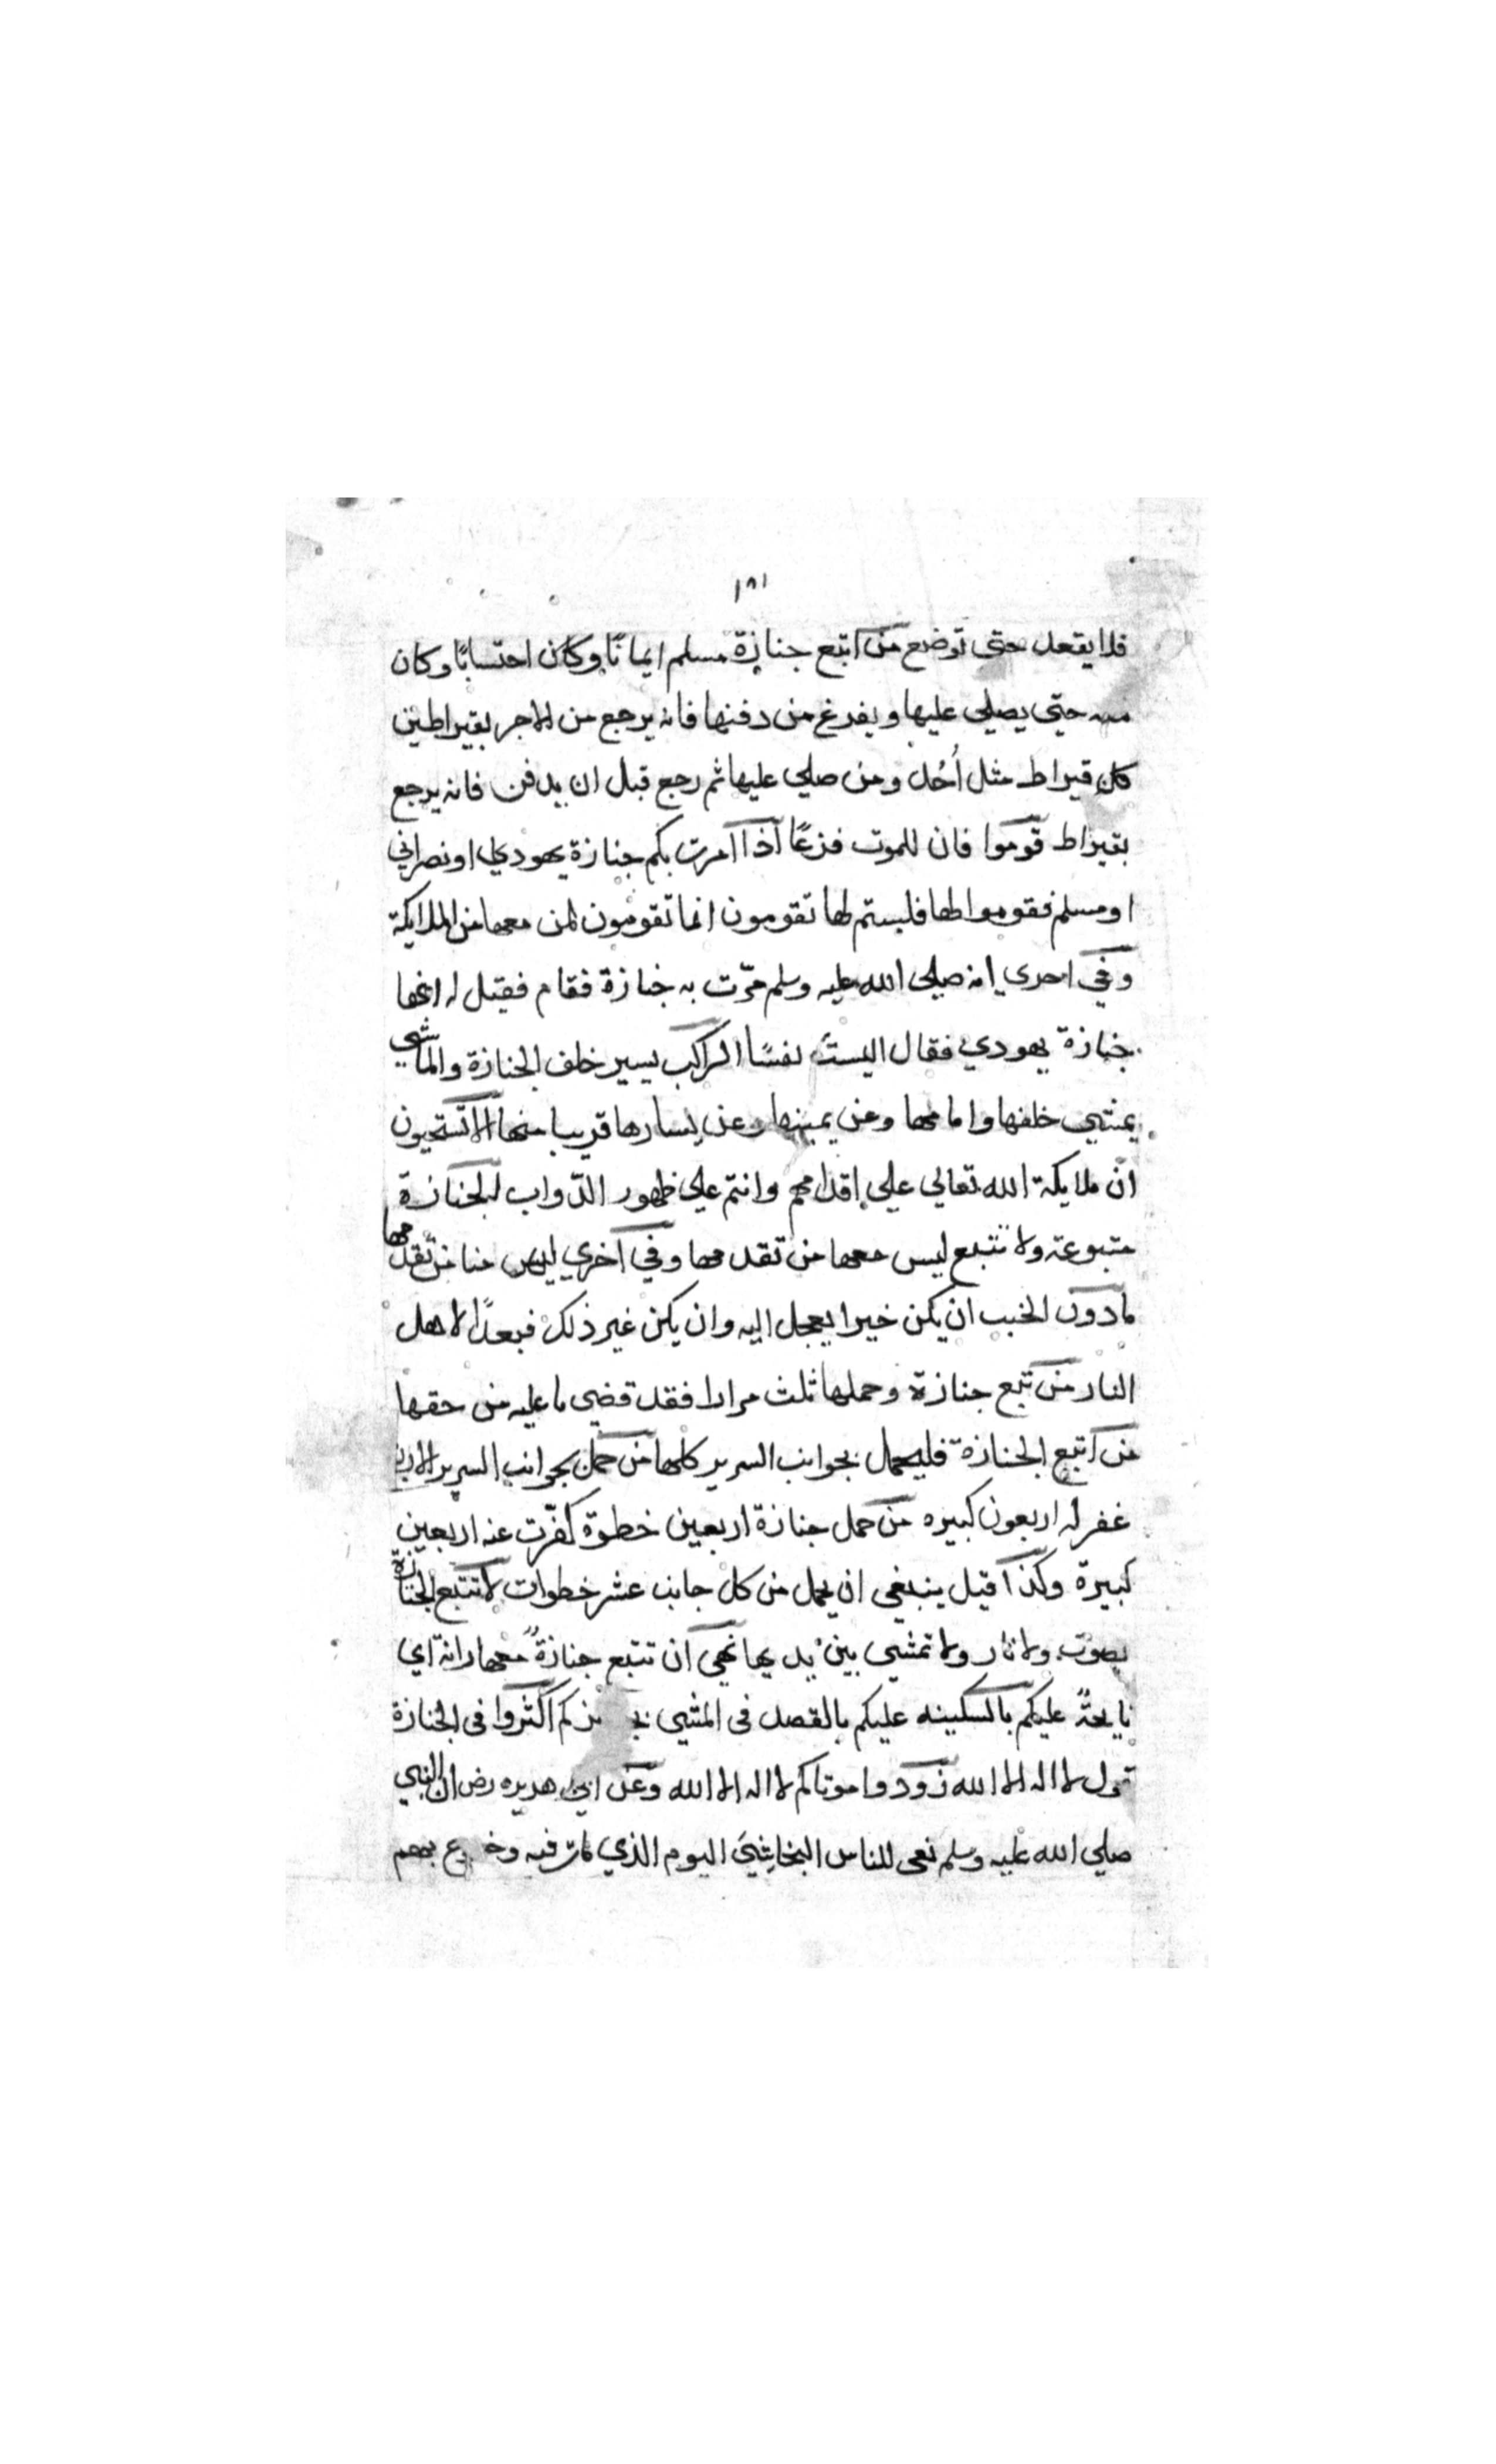 ١٨١
فلا يقعد حتى توضع من اتبع جنازة مسلم ايمانًا وكان احتسابًا وكان
معه حتي يصلي عليها ويفرغ من دفنها فانه يرجع من الاجر بقيراطين
كل قيراط مثل أُحُد ومن صلي عليها ثم رجع قبل ان يدفن فانه يرجع
بقيراط قوموا فان للموت فزعًا اذا امرت بكم جنازة يهودي او نصراني
او مسلم فقوموا لها فلستم لها تقومون انما تقومون لمن معها من الملايكة
وفي احدي انه صلي الله عليه وسلم مرّت به جنازة فقام فقيل له انها
جنازة يهودي فقال اليست نفسًا الراكب يسير خلف الجنازة والماشي
يمشي خلفها وامامها وعن يمينها وعن يسارها قريبا منها الا تستحيون
ان ملايكة الله تعالي علي اقدامهم وانتم علي ظهور الدّواب الجنازة
متبوعة ولا تتبع ليس معها من تقدمها وفي اخري ليس منا من تقدمها
ما دون الخبب ان يكن خيرا يعجل اليه وان يكن غير ذلك فبعدًا لاهل
النار من تبع جنازة وحملها ثلث مرارا فقد قضي ما عليه من حقها
من اتبع الجنازة فليحمل بجوانب السرير كلها من حمل بجوانب السرير الاربع
غفر له اربعون كبيره من حمل جنازة اربعين خطوة كفّرت عنه اربعين
كبيرة وكذا قيل ينبغي ان يحمل من كل جانب عشر خطوات لا تتبع الجنازة
بصوت ولا نار ولا تمشي بين يديها نهي ان تتبع جنازةً معها رانة اي
نايحةً عليكم بالسكينه عليكم بالقصد في المشي بجنايزكم اكثروا في الجنازة
قول لا اله الا الله زودوا موتاكم لا اله الا الله وعن ابي هريره رض ان النبي
صلي الله عليه وسلم نعى للناس النجاشيَ اليوم الذي مات فيه وخرج بهم